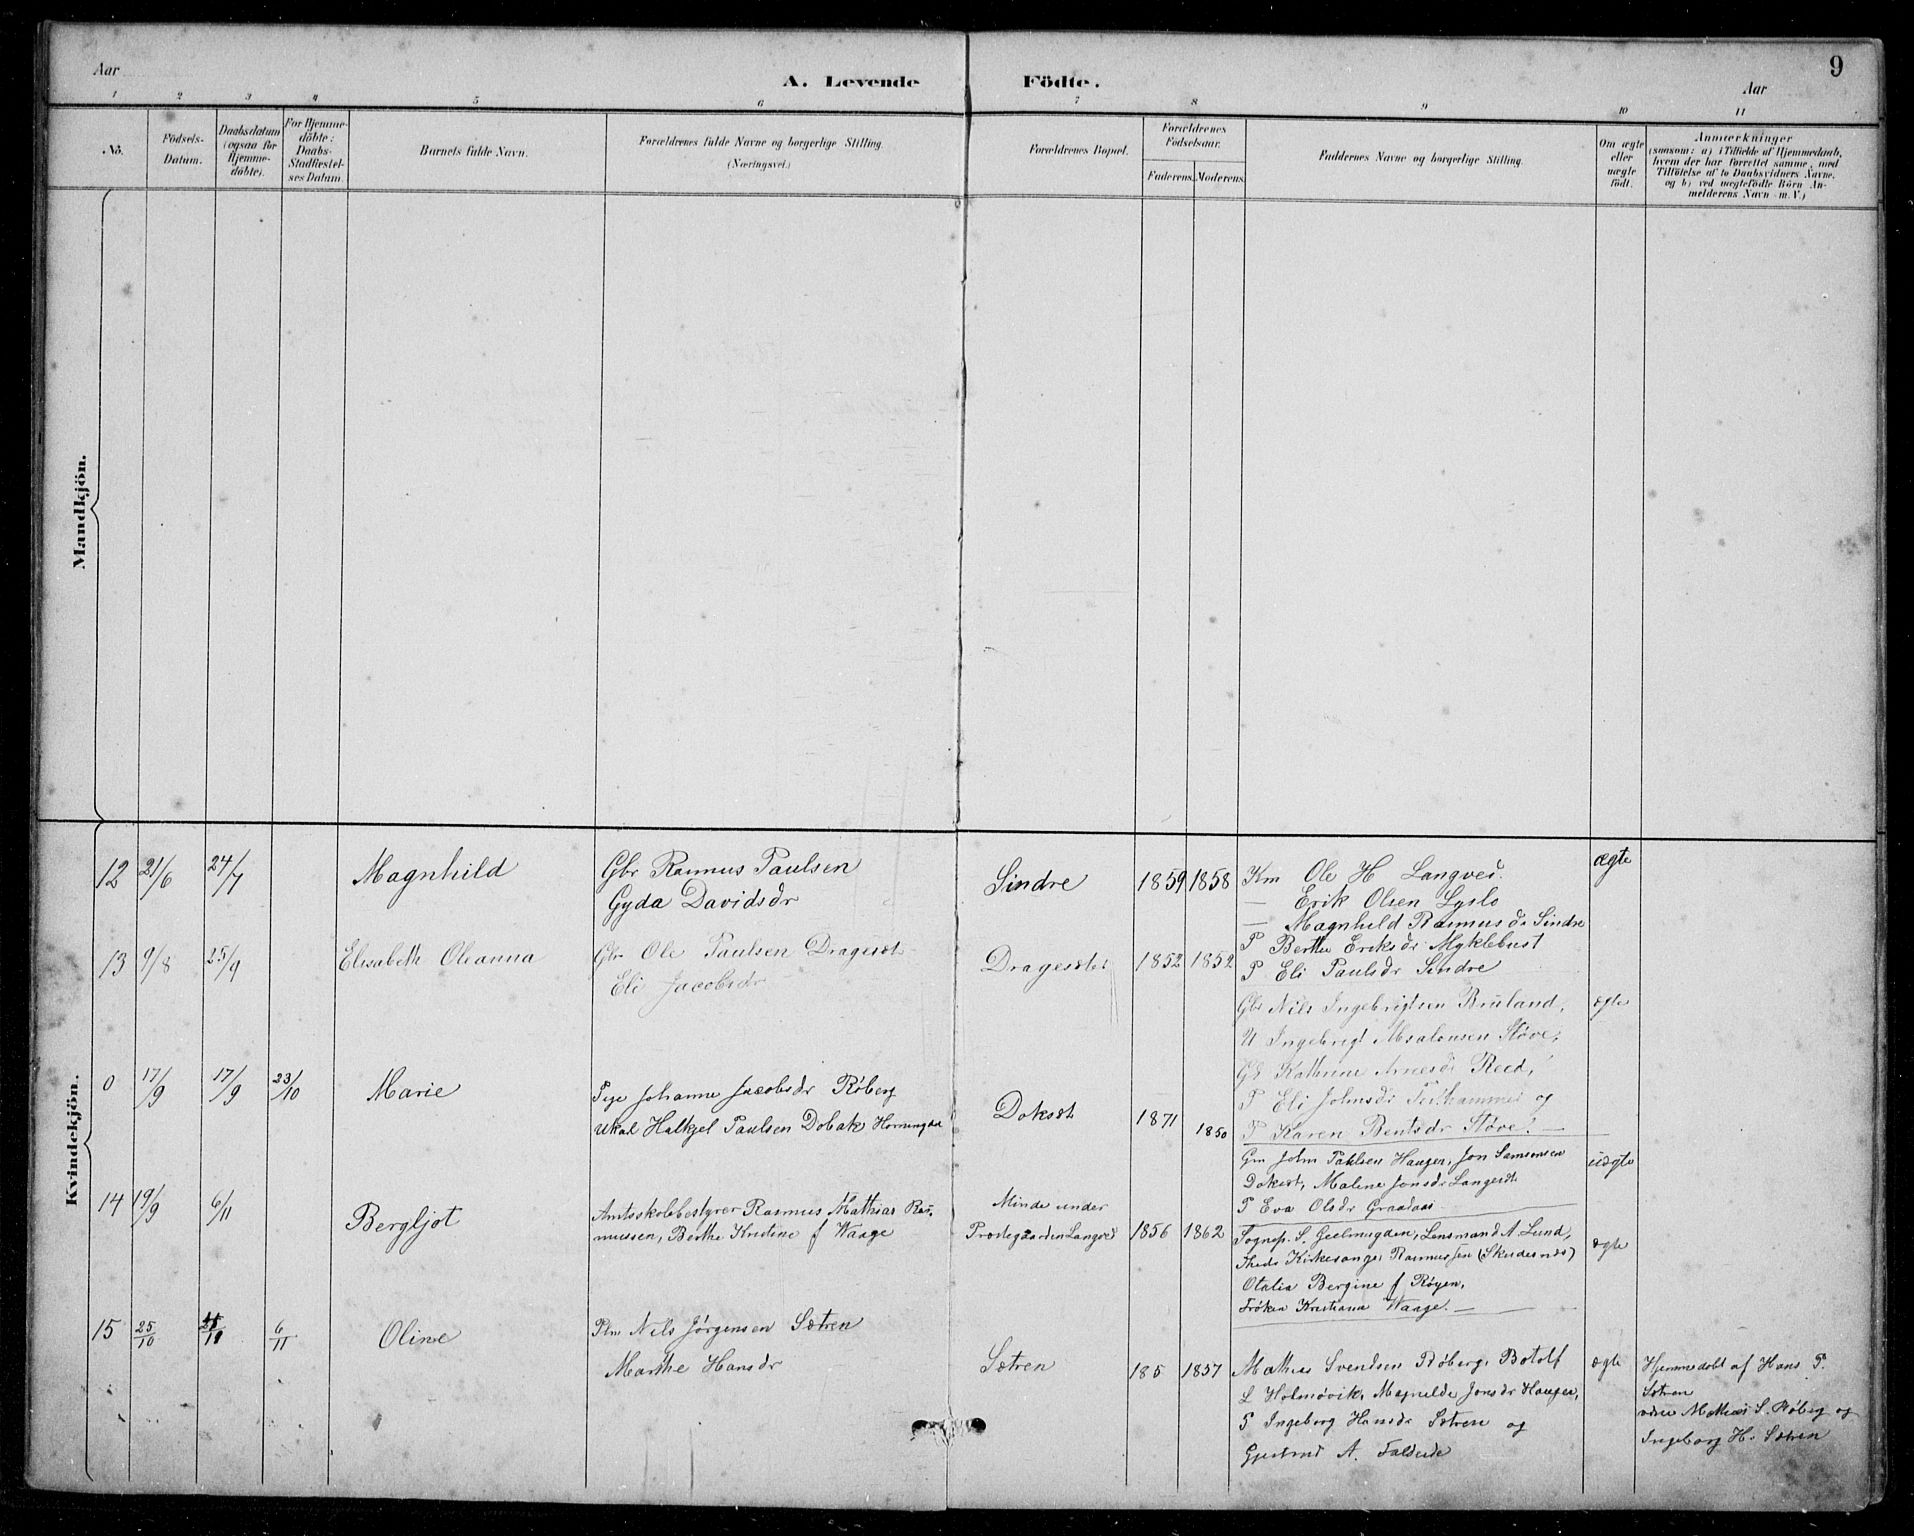 9
Aar
A. Levende
Födte.
Aar
1 2 3 4 5 6 7 8 9 10 11
No.
Födsels-
Datum.
Daabsdatum
(ogsaa for
Hjemme-
döbte).
For Hjemme-
döbte:
Daabs-
Stadfæstel-
ses Datum.
Barnets fulde Navn.
Forældrenes fulde Navne og borgerlige Stilling.
(Næringsvei.)
Forældrenes Bopæl.
Forældrenes
Födselsaar.
Faderens. Moderens.
Faddernes Navne og borgerlige Stilling.
Om ægte
eller
uægte
födt.
Anmærkninger
(saasom: a) i Tilfælde af Hjemmedaab,
hvem der har forrettet samme, med
Tilföielse af to Daabsvidners Navne,
og b) ved uægtefödte Börn An-
melderens Navn m. V.)
Mandkjön.
Kvindekjön.
12 21/6 24/7 Magnhild
Gbr Rasmus Paulsen
Gyda Davidsdr
Sindre 1859 1858
Km Ole H Langved.
— Erik Olsen Lyslo
— Magnhild Rasmusdr Sindre
P Berthe Eriksdr Myklebust
P Eli Paulsdr Sindre
ægte
13 9/8 25/9 Elisabeth Oleanna
Gbr Ole Paulsen Dragesæt
Eli Jacobsdr
Dragesæt 1852 1852
Gbr Nils Ingebrigtsen Bruland,
U Ingebrigt Absalonsen Støve,
Kathrine Arnesdr Reed,
P Eli Johnsdr og
P Karen Bentsdr Støve. —
ægte
0 17/9 17/9 23/10 Marie
Pige Johanne Jacobsdr Røberg
Ukal Halkjel Paulsen Dobak
Doksæt 1871 1850
Gm John Paulsen Haugen, Jon Samsonsen
Doksæt, Malene Jonsdr Langesæt
P Eva Olsdr Graadaas
uægte
14 19/9 6/11 Bergljot
Amtsskolebestyrer Rasmus Mathias Ras-
mussen, Berthe Kristine f Waage
Minde under
Præstegaarden Langved
1856 1862
Sognep. S. Geelmuyden, Lensmand A. Lund,
Kirkesanger Rasmussen (Skudesnæs)
Otalia Bergine f Røyen,
Frøken Kristiana Waage. —
ægte
15 25/10 6/11 Oline
Plm Nils Jørgensen Sætren
Marthe Hansdr
Sætren 185 1857
Mathias Svendsen Røberg, Botolf
L Holmøvik, Magnilde Jonsdr Haugen,
P Ingeborg Hansdr Sætren og
Gjertrud A.
ægte
Hjemmedøbt af Hans P.
Sætren
Mathias S. Røberg og
Ingeborg H. Sætren